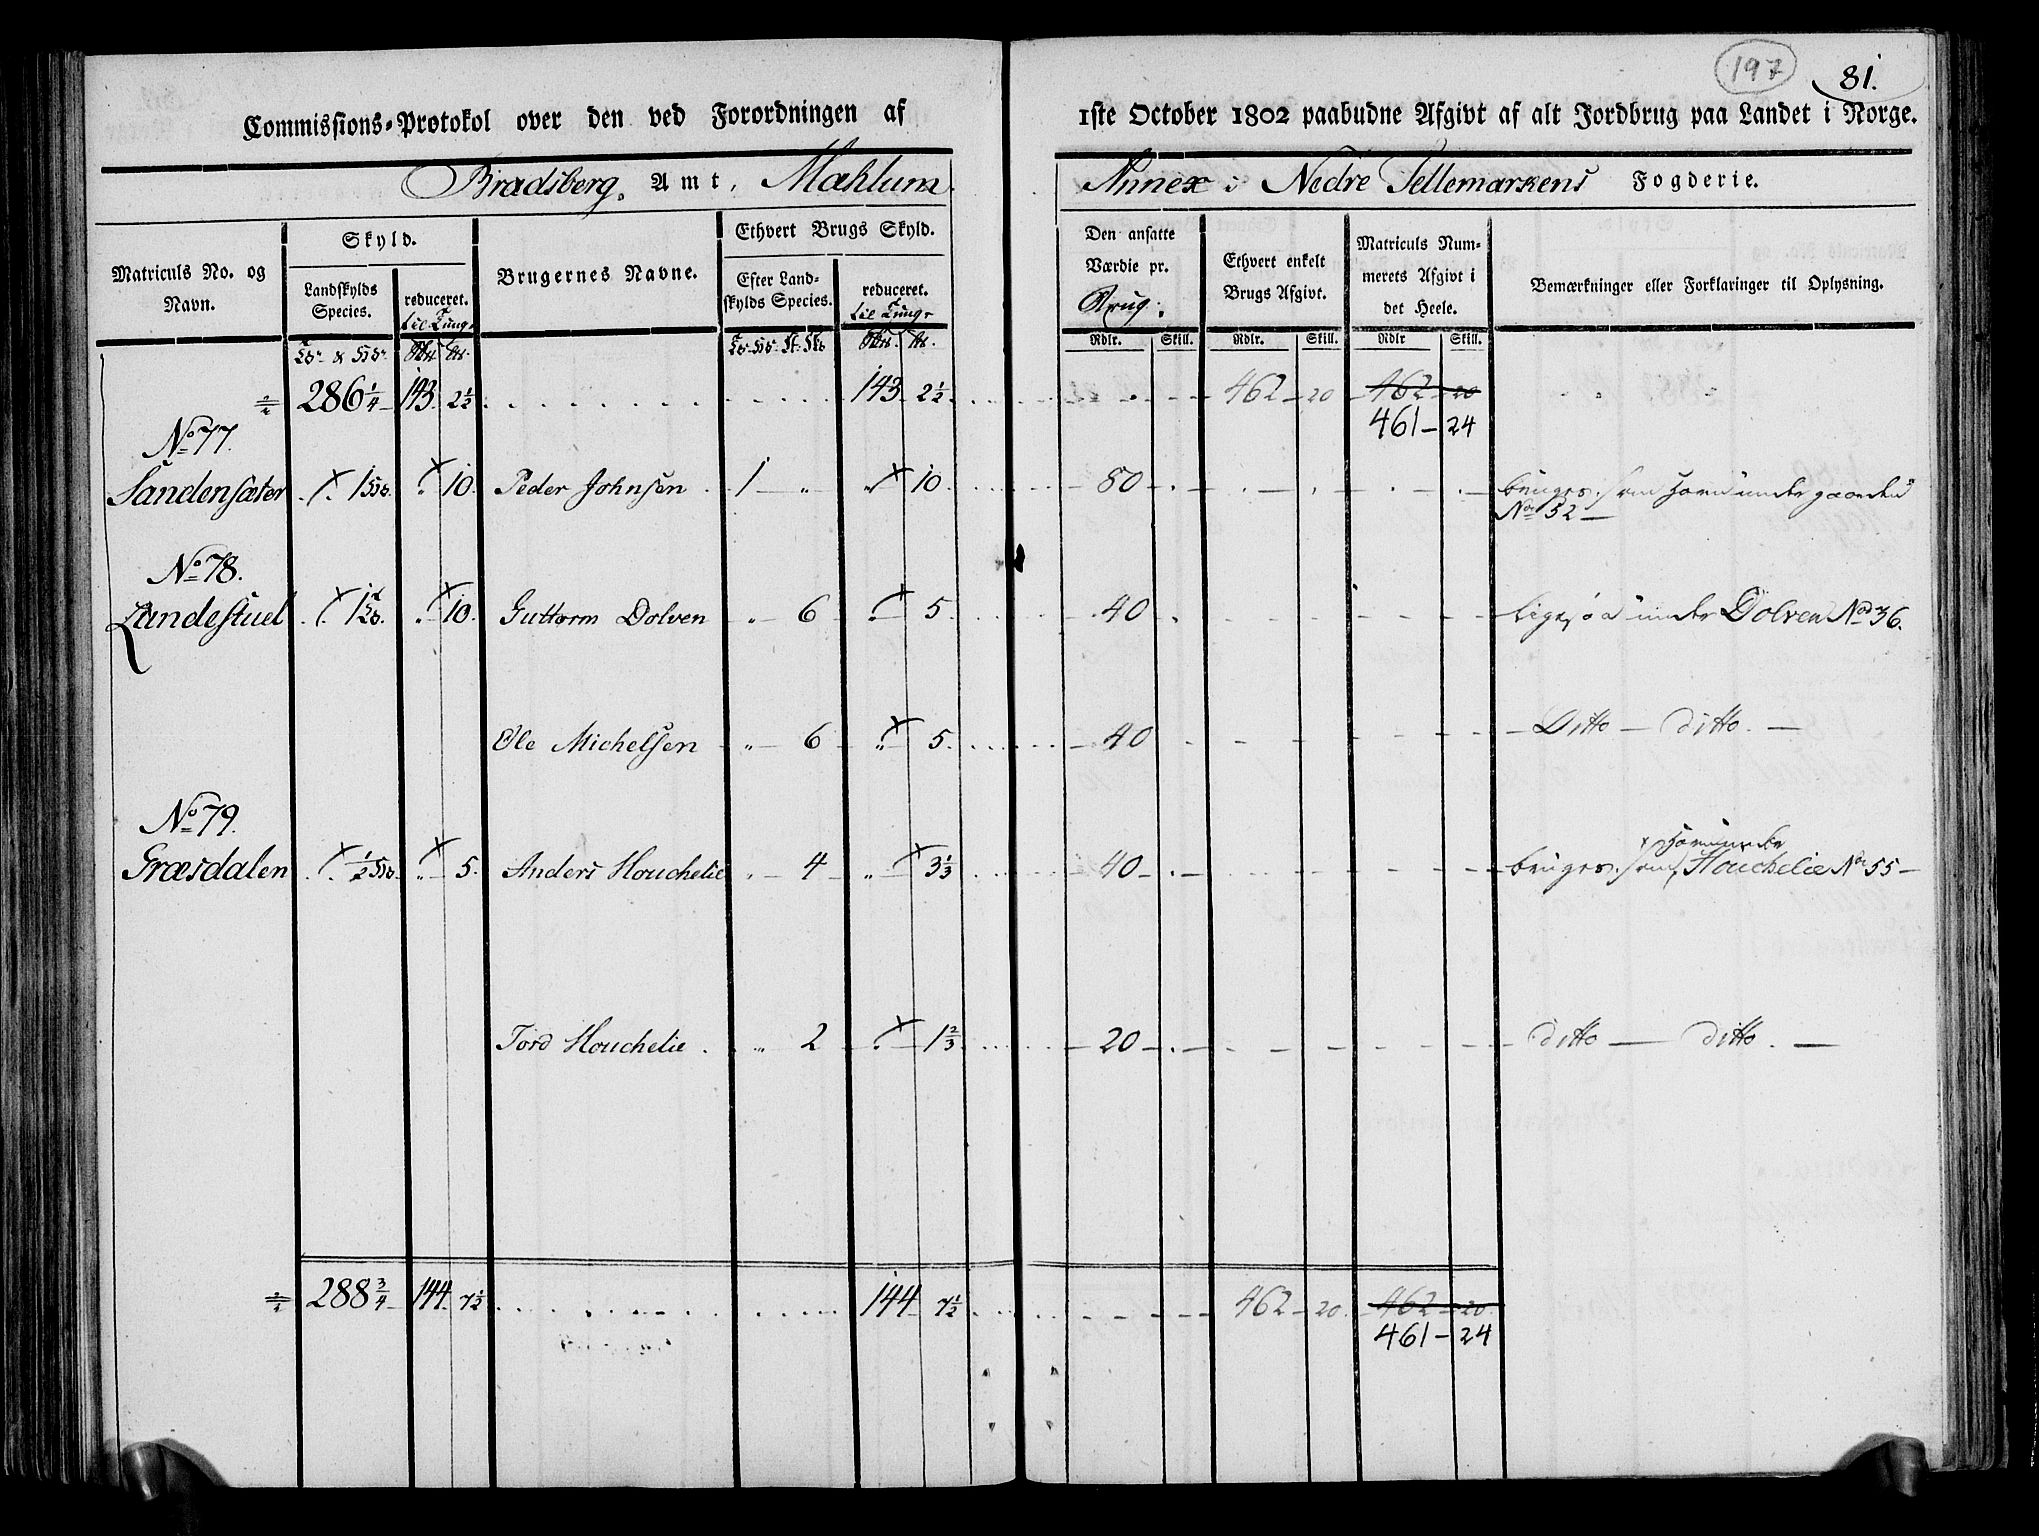 197
81.
Commissions-Protokol over den ved Forordningen af 1ste October 1802 paabudne Afgivt af alt Jordbrug paa Landet i Norge.
Bradsberg. Amt, Mælum Annex i Nedre Tellemarkens Fogderie.
Matriculs No. og Navn.
Skyld.
Landskylds Species.
reduceret. til Tung.
Brugernes Navne.
Ethvert Brugs Skyld.
Efter Landskylds Species.
reduceret. til Tung.
Den ansatte Værdie pr. Brug.
Ethvert enkelt Brugs Afgivt.
Matriculs Nummerets Afgivt i det Heele.
Bemærkninger eller Forklaringer til Oplysning.
Rdlr. Skill. Rdlr. Skill. Rdlr Skill.
286 1/4 143 2 1/2 143 2 1/2 462 20 462 20
461 - 24
No 77.
Sandensæter 10 Peder Johnsen 1 " 10 80 bruges som under gaarden
No 52
No 78.
Landestuel 10 Guttorm Dolven " 6 5 40 ligesaa under Dolven No 36.
Ole Michelsen " 6 5 40 Ditto - ditto
No 79.
Græsdalen 1/2 5 Anders Houchelie " 4 3 1/3 40 bruges som under Houchelie No 55
Tord Houchelie " 2 1 2/3 20 ditto - ditto
288 3/4 144 7 1/2 144 7 1/2 462 20 462 20
461 - 24